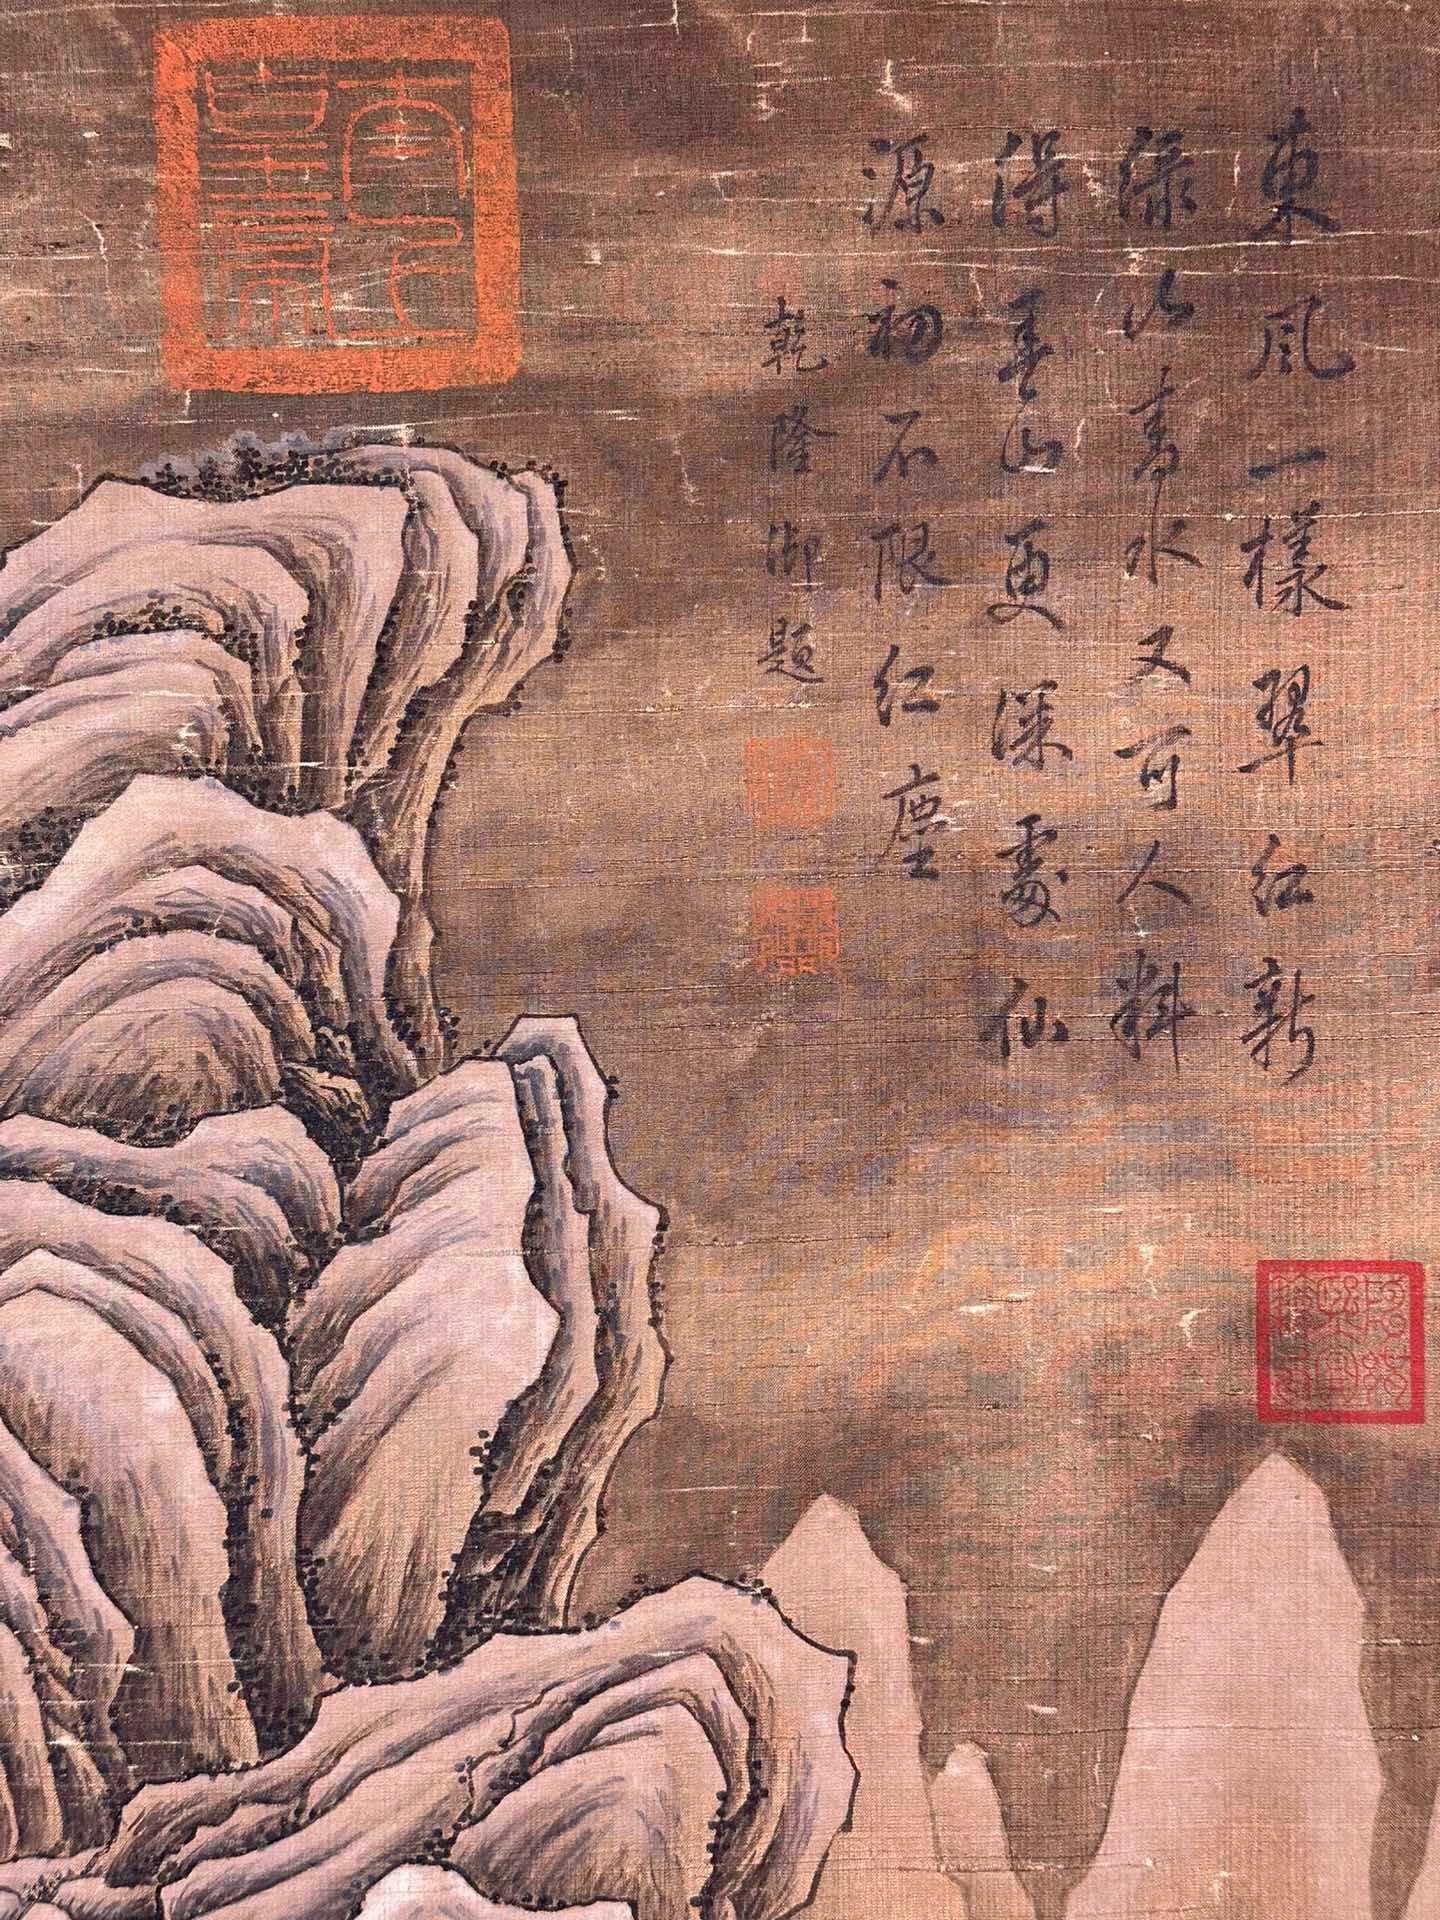 東風一樣翠紅新
綠山青水又可人料
得春山更深處仙
源初不限紅塵
乾隆御題
太上
皇帝